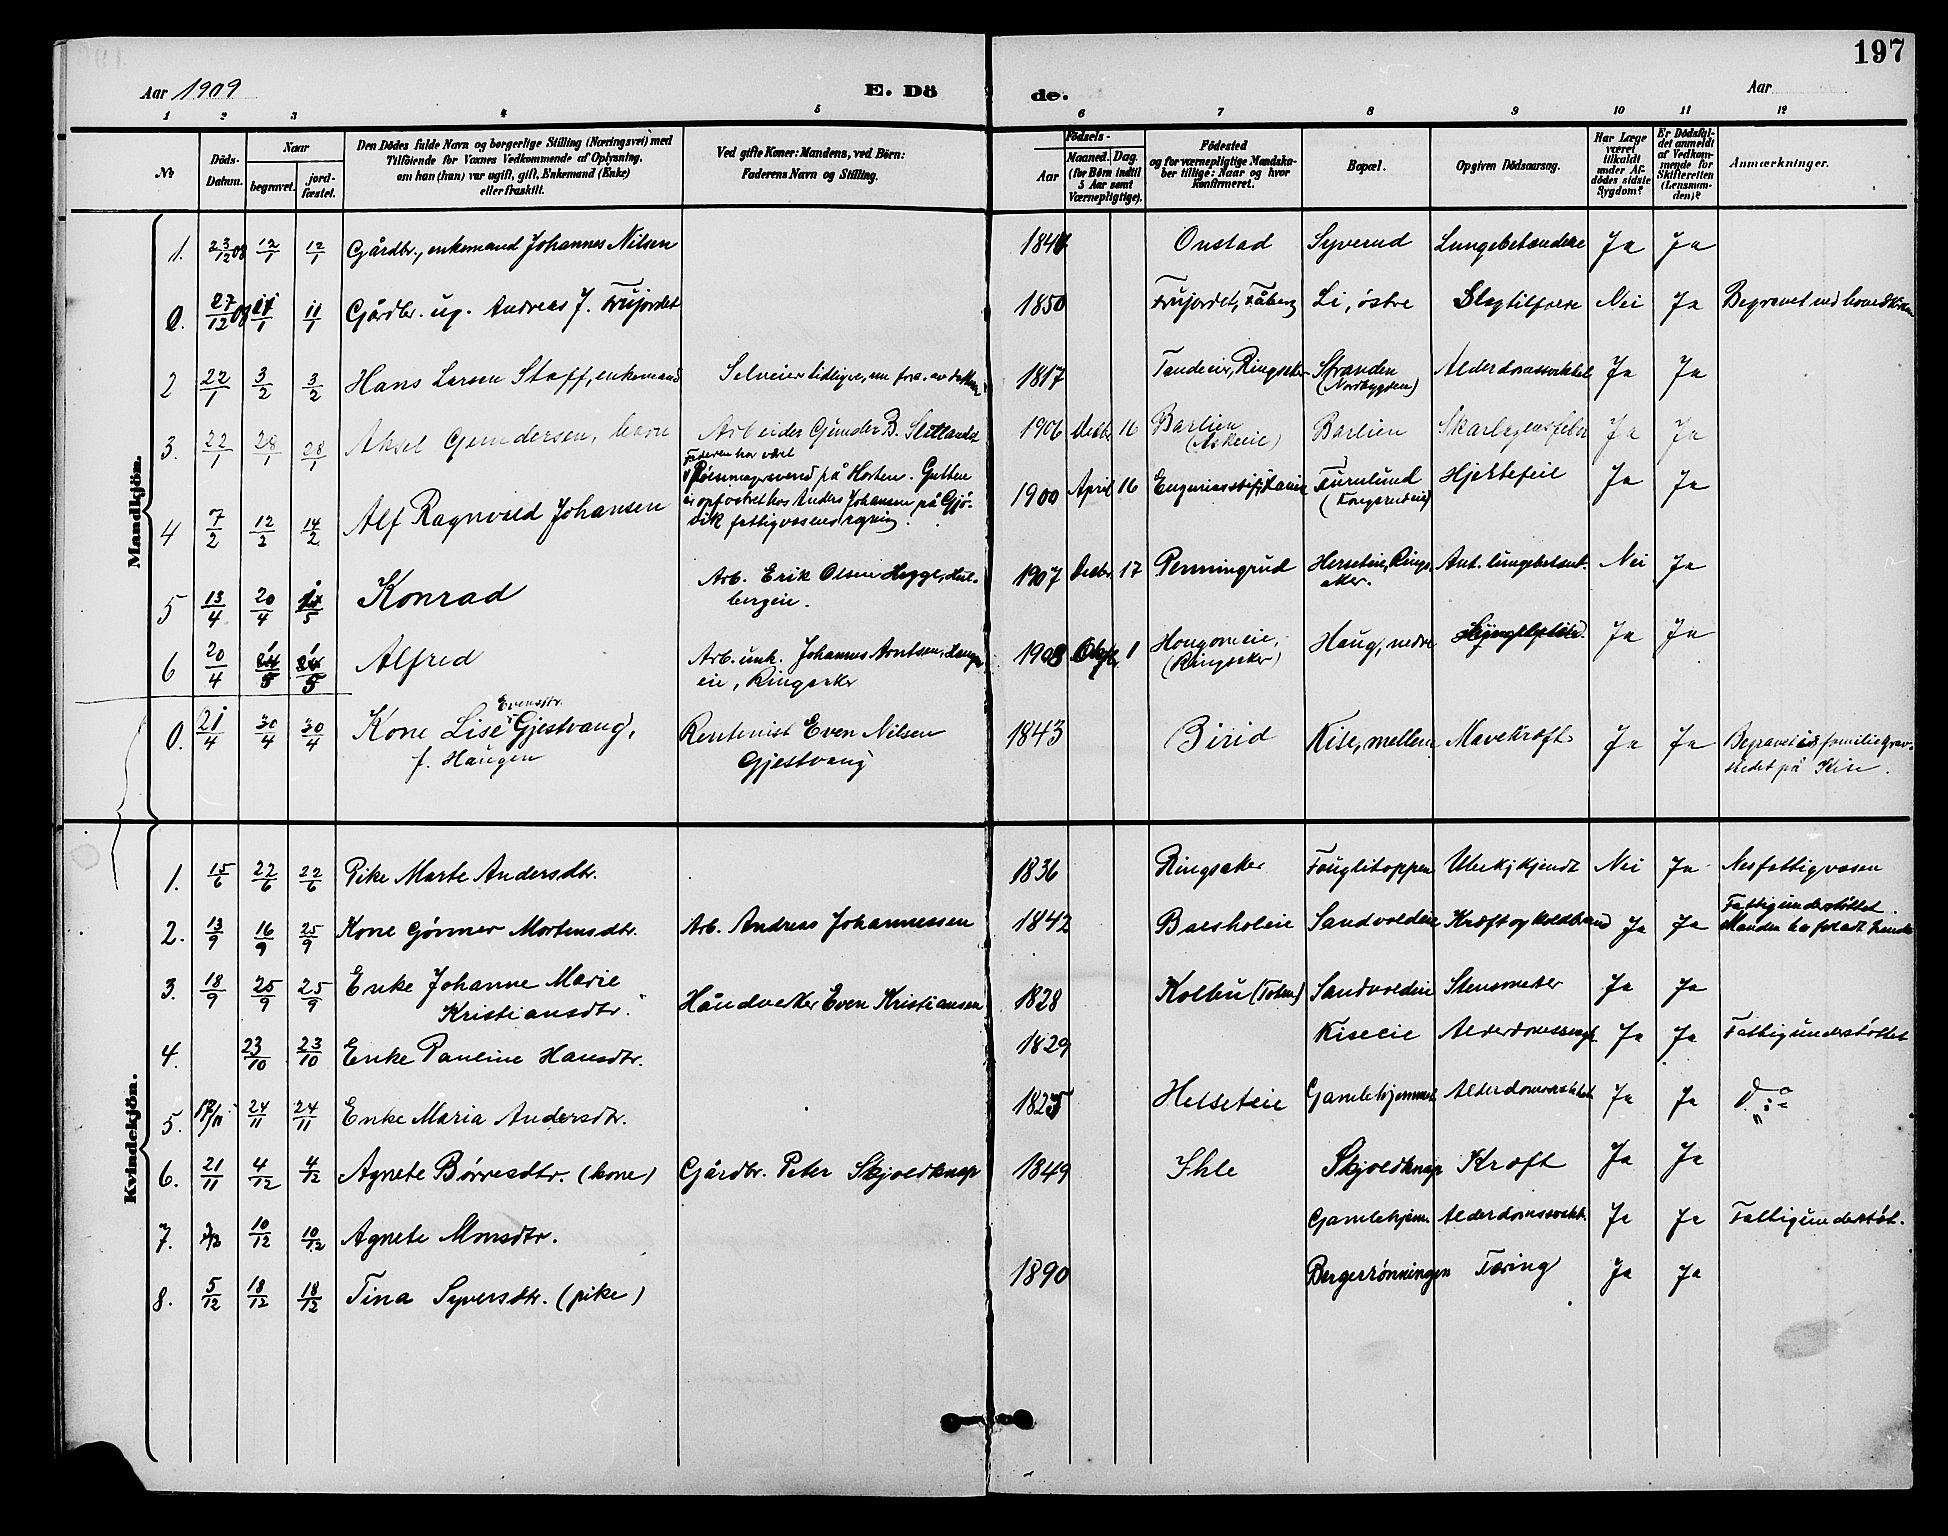 197
Aar 1909
E. Dö
de.
Aar
1 2 3 4 5 6 7 8 9 10 11 12
No
Döds-
Datum.
Naar
begravet.
jord-
fæstet.
Den Dödes fulde Navn og borgerlige Stilling (Næringsvei) med
Tilföiende for Voxnes Vedkommende af Oplysning,
om han (hun) var ugift, gift, Enkemand (Enke)
eller fraskilt.
Ved gifte Koner: Mandens, ved Börn:
Faderens Navn og Stilling.
Födsels-
Aar
Maaned.
Dag.
(for Börn indtil
5 Aar samt
Værnepligtige).
Födested
og for værnepligtige Mandska-
ber tillige: Naar og hvor
konfirmeret.
Bopæl.
Opgiven Dödsaarsag.
Har Læge
været
tilkaldt
under Af-
dödes sidste
Sygdom?
Er Dödsfal-
det anmeldt
af Vedkom-
mende for
Skifteretten
(Lensman-
den)?
Anmærkninger.
Mandkjön.
1. 23/12 08 12/1 12/1 Gårdbr., enkemand Johannes Nilsen 1840 Onstad Syverud Lungebetændelse Ja Ja
0. 27/12 08 11/1 11/1 Gårdbr. ug. Andreas J. Frujordet 1850 Frujordet, Fåberg Li, östre Slagtilfælde Nei Ja Begravet ved hovedkirken
2 22/1 3/2 3/2 Hans Larsen Staff, enkemand Selveier tidligere, nu fors. av datteren 1817 Tandeeie, Ringsaker Stranden Alderdomssvakhet Ja Ja
(Nordbygden)
3. 22/1 28/1 28/1 Aksel Gundersen, barn Arbeider Gunder B. 1906 Decbr 16 Barlien Barlien Skarlagensfeber Ja Ja
(Askeeie)
4 7/2 12/2 14/2 Alf Ragnvald Johansen
Faderen har vært
på Horten. Gutten
er opfostret hos Anders Johansen på Gjö-
vik fattigvæsens regning.
1900 April 16 Furulund Hjertefeil Ja Ja
5 13/4 20/4 Konrad Arb. Erik Olsen Hegge,
bergeie.
1907 Decbr. 17 Penningrud Herseteie, Rings- Ant. lungebetænd. Nei Ja
aker.
6 20/4 Alfred Arb. unk. Johannes Arntsen, Haug-
eie, Ringsaker
1908 1 Haugomeie, Haug, nedre Ja Ja
(Ringsaker)
0. 21/4 30/4 30/4 Kone Lise Evensdtr. Gjestvang,
f. Haugen
Rentenist Even Nilsen
Gjestvang
1843 Birid Kise, mellem Mavekræft Ja Ja Begravet i familiegrav-
stedet på Kise.
Kvindekjön.
1. 15/6 22/6 22/6 Pike Marte Andersdtr. 1836 Ringsaker Fouglitoppen Ubekjendt Nei Ja Nes fattigvæsen
2. 13/9 16/9 25/9 Kone Gunnor Mortensdtr. Arb. Andreas Johannessen 1842 Baesholeie Sandvoldeie Kræft og koldbrand Ja Ja Fattigunderstöttet.
Manden har forladt hende
3. 18/9 25/9 25/9 Enke Johanne Marie
Kristiansdtr.
Håndverker Even Kristiansen 1828 Kolbu (Toten) Sandvoldeie Stensmerter Ja Ja
4. 23/10 23/10 Enke Pauline Hansdtr. 1829 Kiseeie Alderdomssvagh. Ja Ja Fattigunderstöttet
5. 17/11 24/11 24/11 Enke Maria Andersdtr. 1825 Helseteie Gamlehjemmet Alderdomssvakhet Ja Ja Do
6. 21/11 4/12 4/12 Agnete Börresdtr. (kone) Gårdbr. Peter Skjoldknap 1849 Ihle Skjoldknap Kræft Ja Ja
7. 2/12 10/12 10/12 Agnete Monsdtr. Gamlehjem. Alderdomssvakh. Ja Ja Fattigunderstöt.
8. 5/12 18/12 18/12 Tina Syversdtr. (pike) 1890 Bergerrönningen Tæring Ja Ja